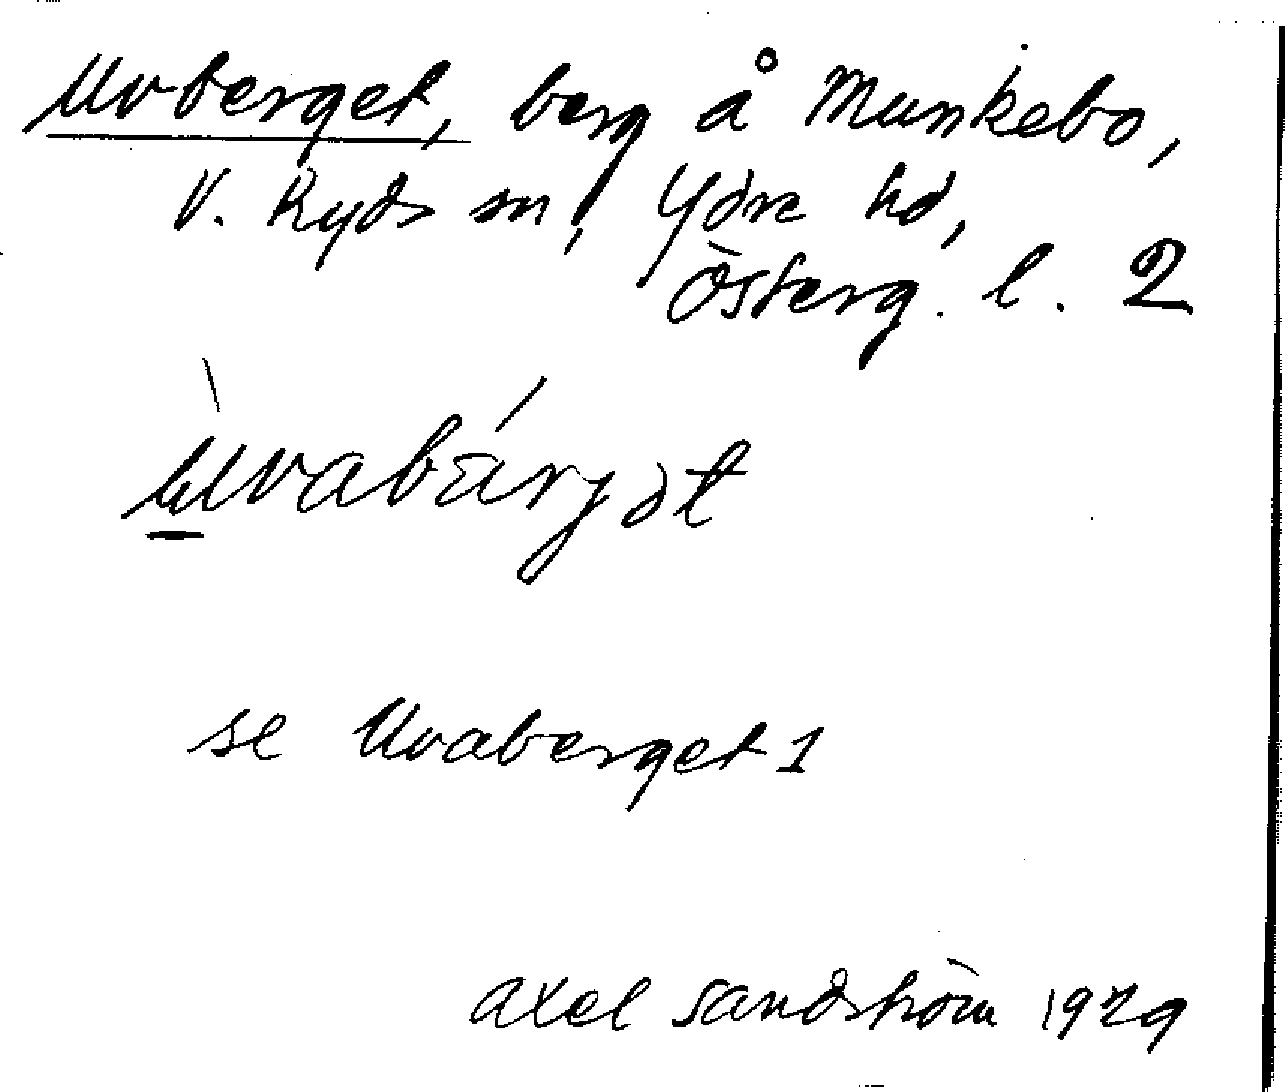 Uvberget, berg å Munkebo,
V. Ryds sn, Ydre hd,
Österg. l. 2
ùvabä́rjət
se Uvaberget 1
Axel Sandström 1929